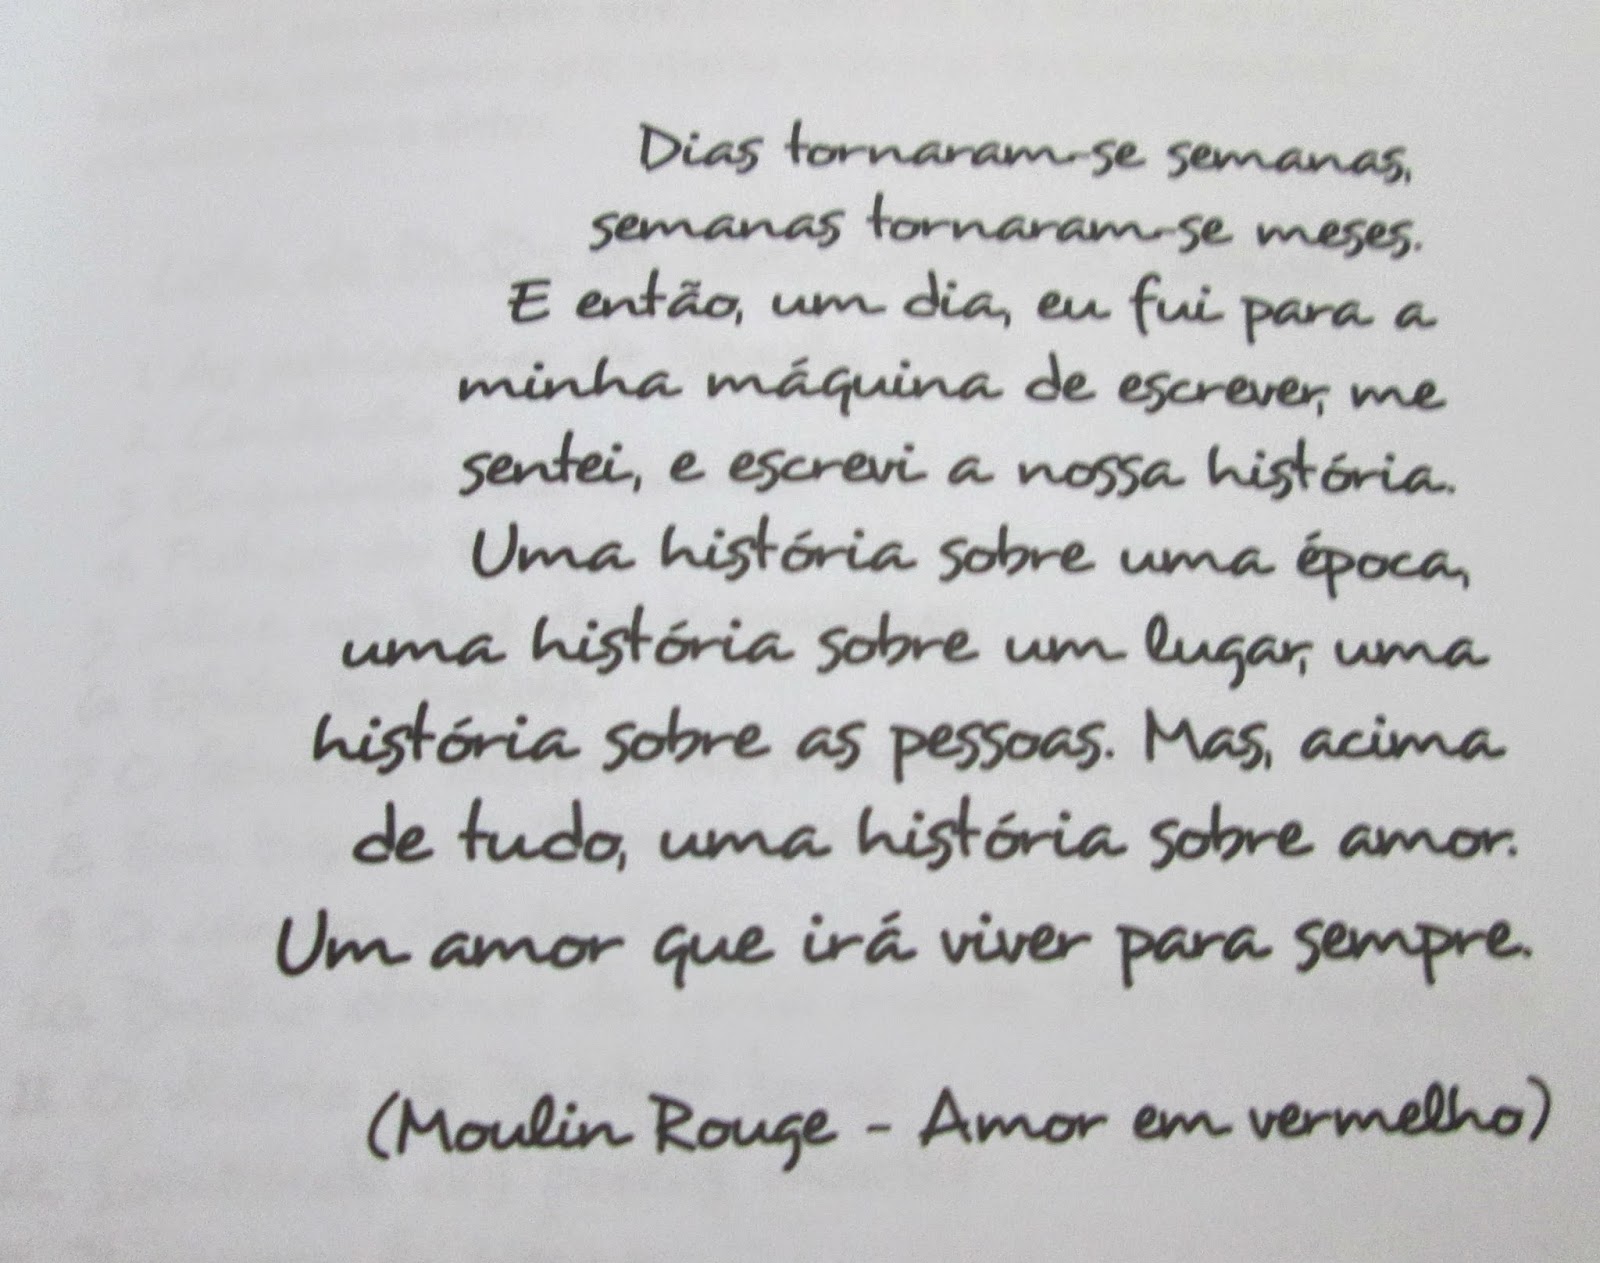 Dias tornaram-se semanas,
semanas tornaram-se meses.
E então, um dia, eu fui para a
minha máquina de escrever, me
sentei, e escrevi a nossa história.
Uma história sobre uma época,
uma história sobre um lugar, uma
história sobre as pessoas. Mas, acima
de tudo, uma história sobre amor.
Um amor que irá viver para sempre.
(Moulin Rouge - Amor em vermelho)